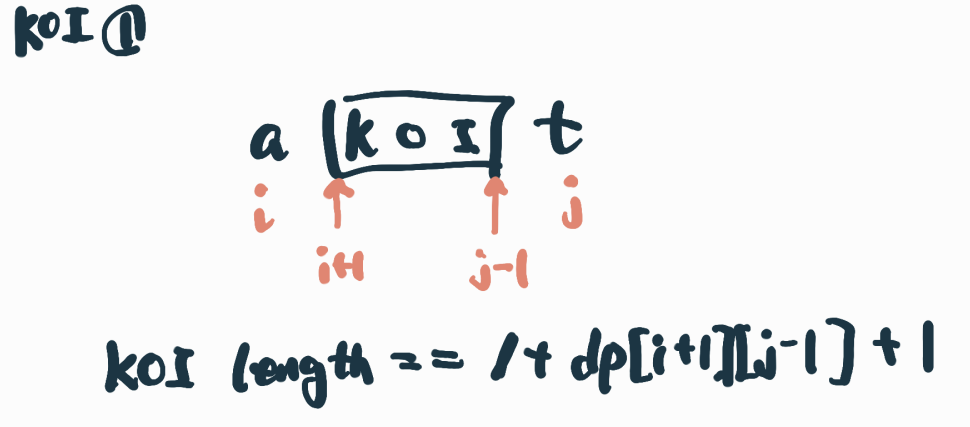 KOI ①
a KOI t
i j
i+1 j-1
KOI length == 1+ dp[i+1][j-1] + 1